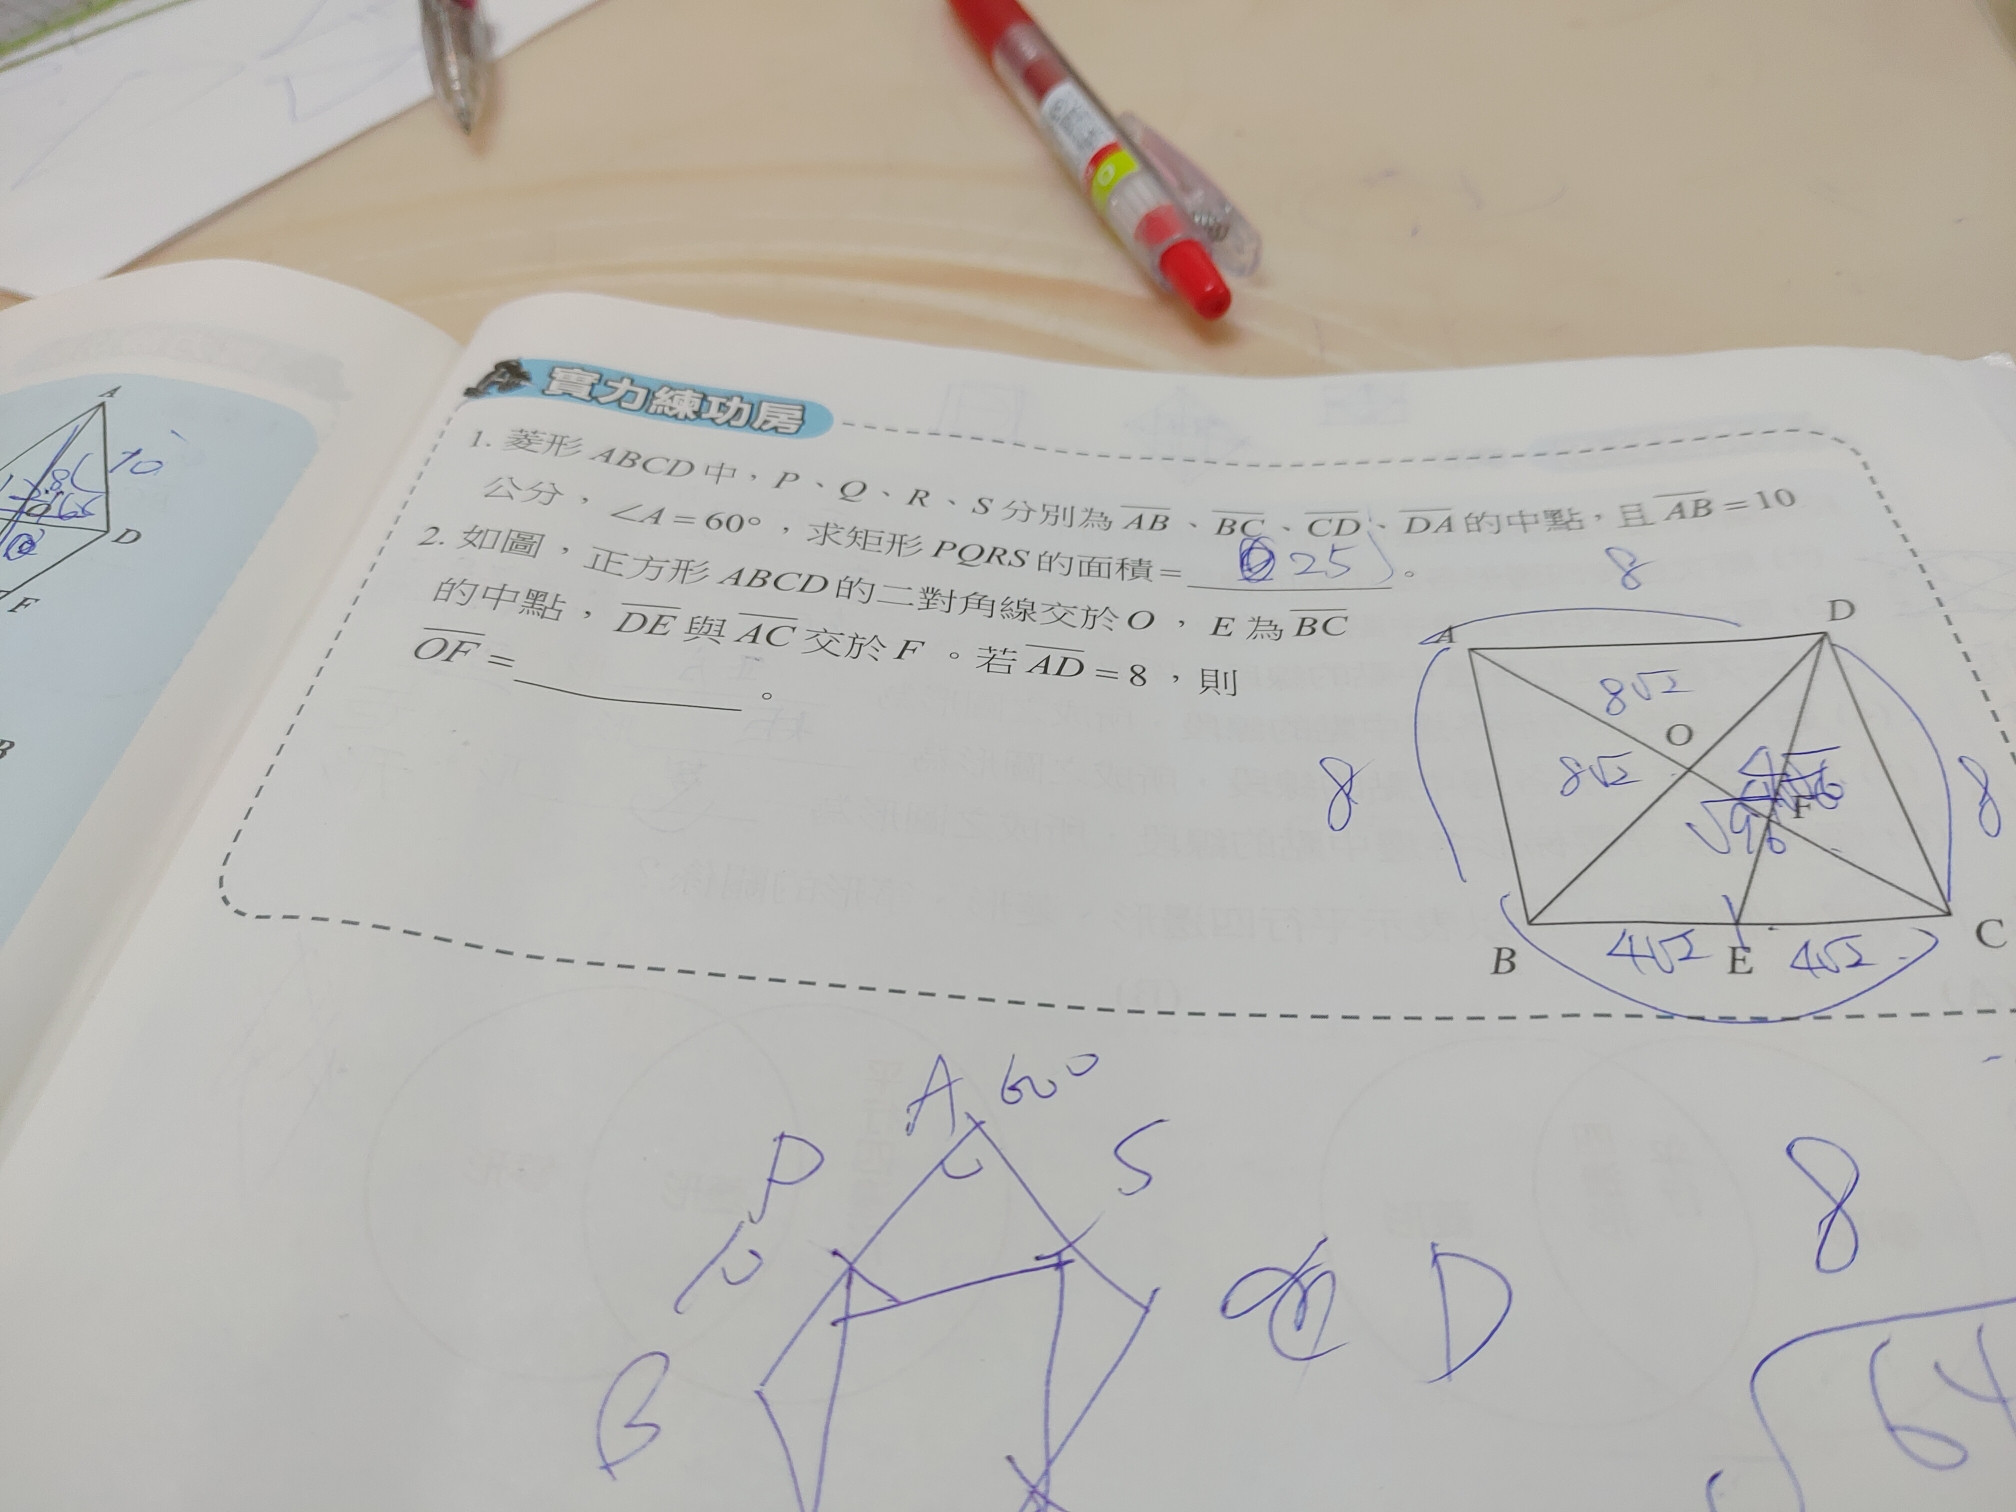 實力練功房
1. 菱形 ABCD 中，P、Q、R、S 分別為 AB、BC、CD、DA 的中點，且 AB = 10
公分，∠A = 60°，求矩形 PQRS 的面積 = 25 。
2. 如圖，正方形 ABCD 的二對角線交於 O，E 為 BC
的中點，DE 與 AC 交於 F。若 AD = 8，則
OF = 。
8
A
D
8√2
O
8√2
8
8
F
√96
B
4√2
E
4√2
C
A
10
O
D
F
B
A 60°
P
S
D
B
8
√64